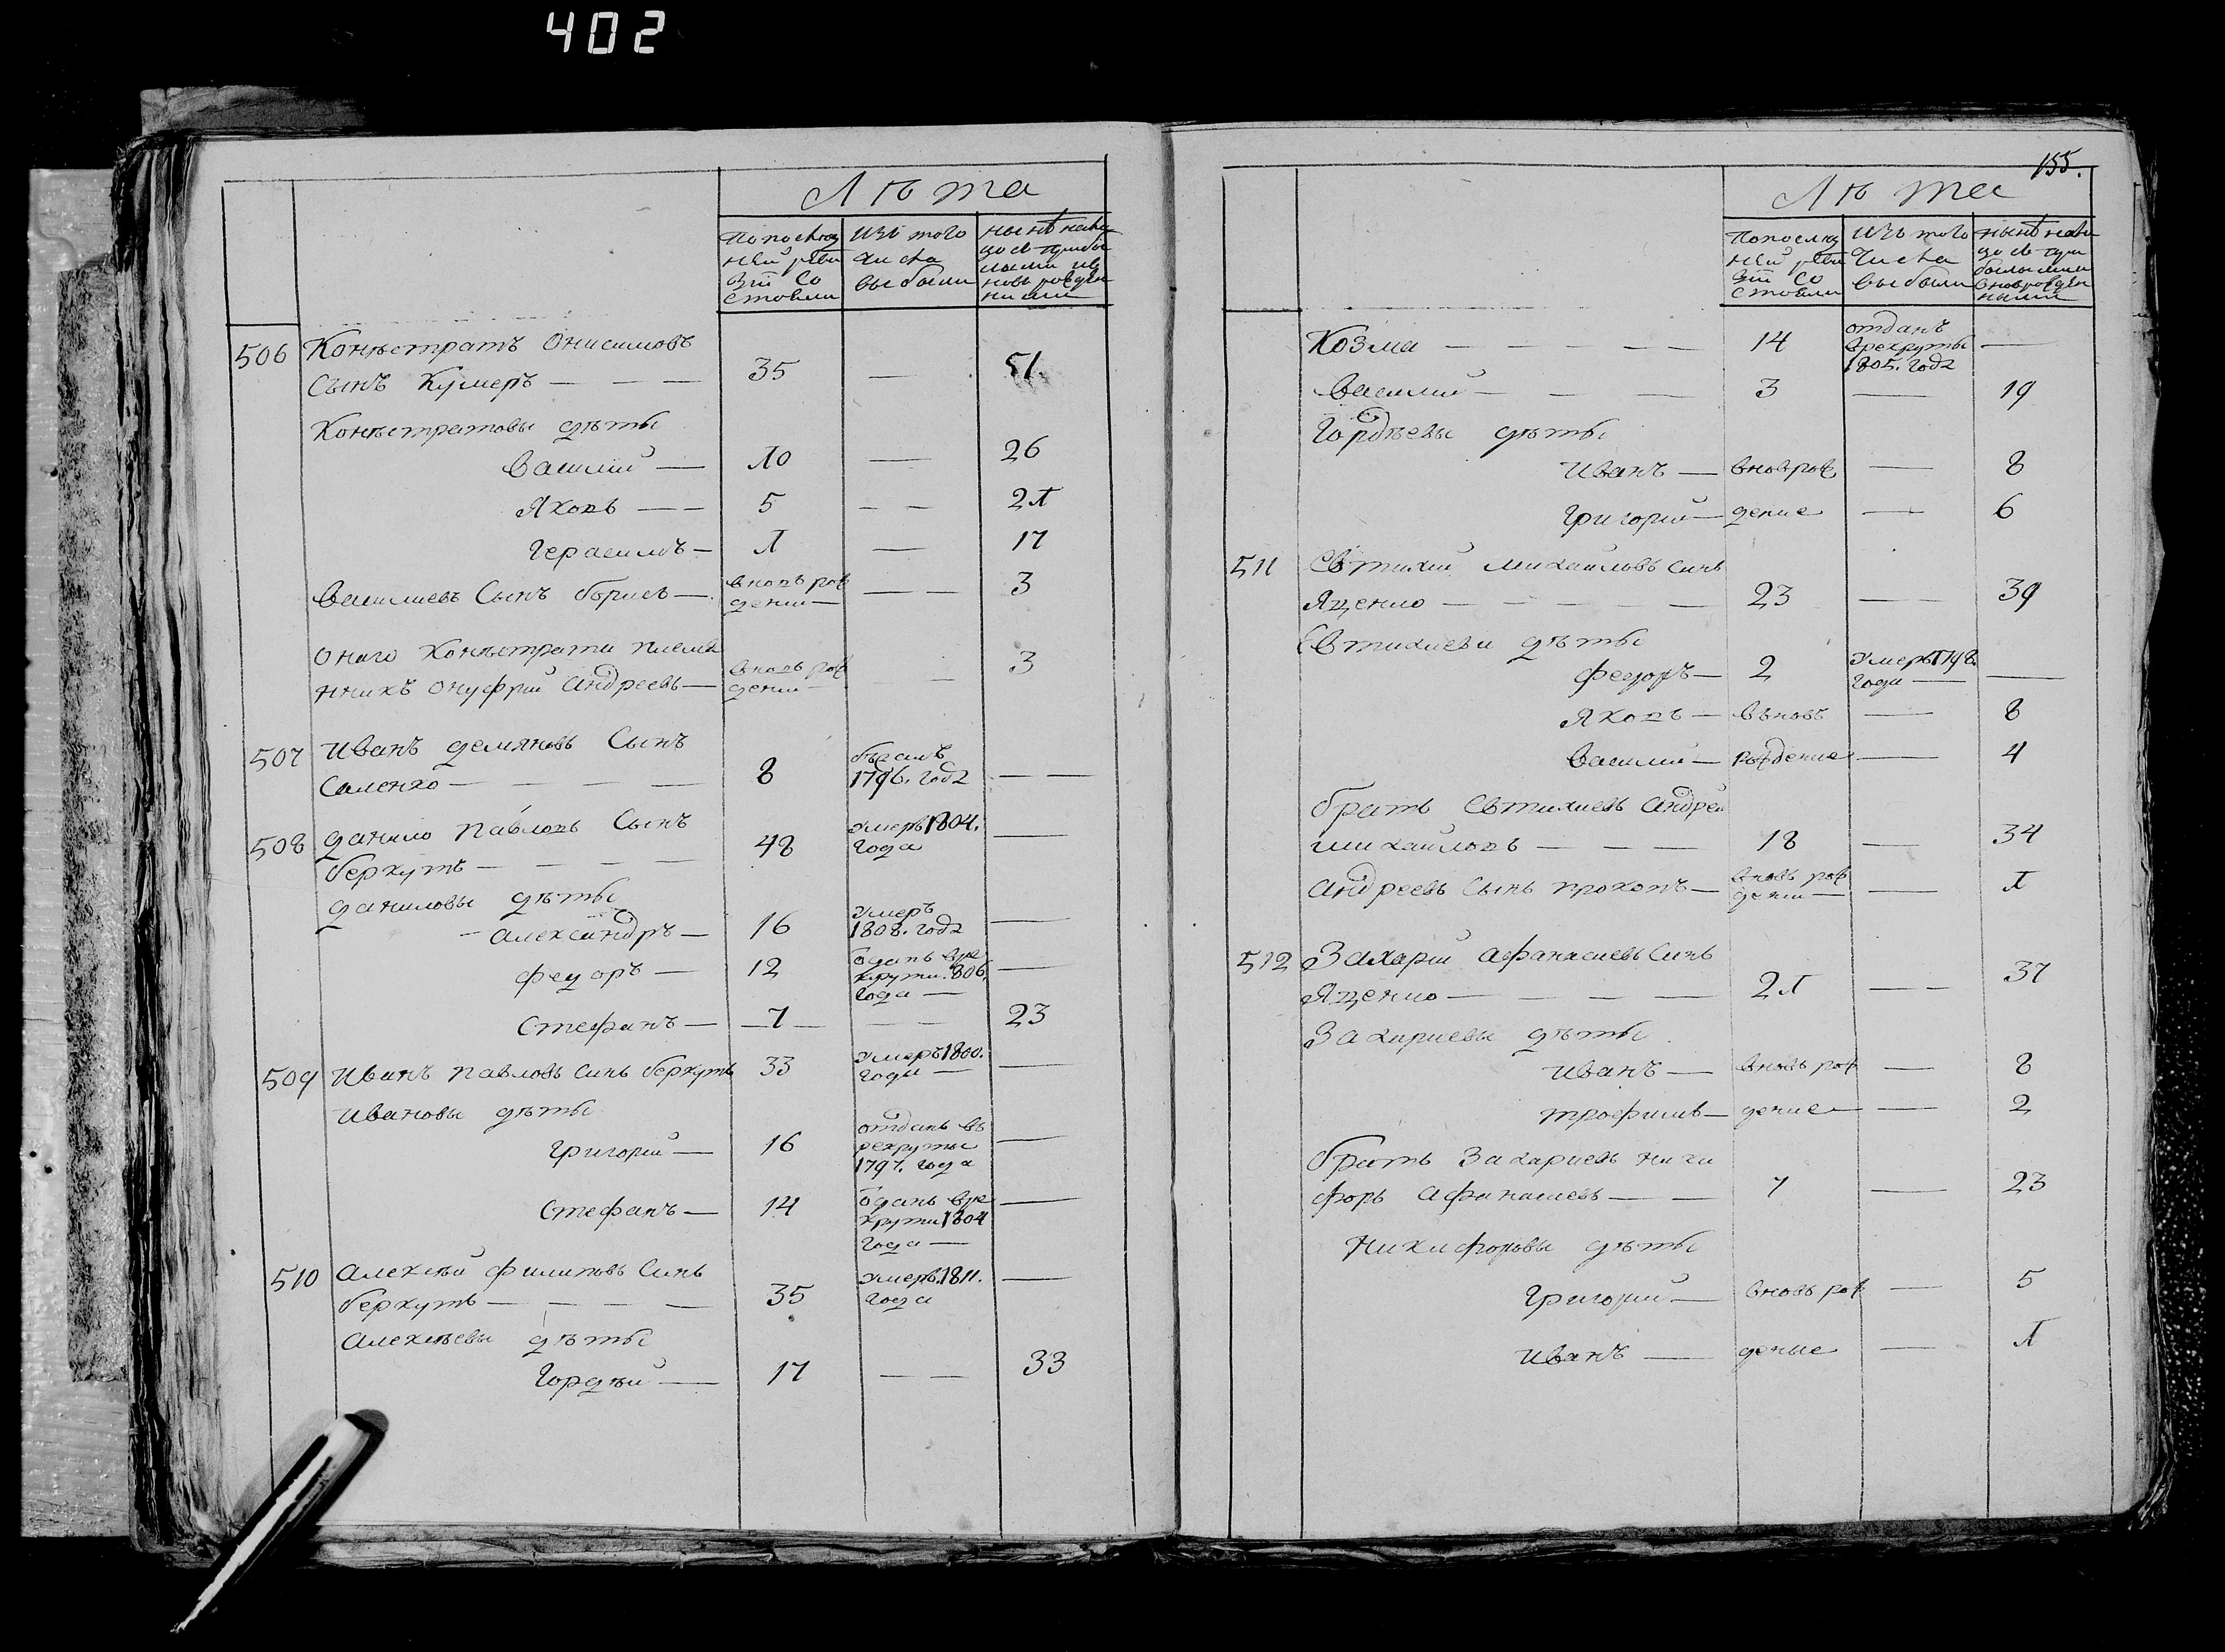 402
Лѣта
Попослѣд
ней реви
зіи со
стояли
Изъ того
числа
выбыли
506
Конъстратъ Онисимовъ
Сынъ Кумеръ — — —
35
—
51.
Конъстратовы дѣты
Василий —
10
—
26
Яковъ — —
5
— —
21
Герасимъ —
1
—
17
Василиевъ Сынъ борисъ —
вновь рож
дени —
— —
3
Оного Конъстрата племя
нникъ Онуфрий Андреевъ —
вновь рож
дени —
—
3
507
Иванъ демяновъ Сынъ
Саленко — — — —
8
бѣглъ
1796. года
— —
508
данило Павловъ Сынъ
беркутъ — — — —
48
умеръ 1804.
года
—
даниловы дѣты
— Александръ —
16
умеръ
1808. года
—
федоръ —
12
ѿданъ вре
круты. 806.
года —
—
Стефанъ —
— 7 —
— —
23
509
Иванъ павловъ Синъ беркутъ
33
умеръ 1800.
года —
—
Ивановы дѣты
Григорий —
16
отданъ въ
рекруты
1797. года
—
Стефанъ —
14
ѿданъ вре
круты 1804
года —
—
510
Алексѣй филиповъ Синъ
беркутъ — — — —
35
умеръ. 1811.
года
—
Алексѣевы дѣты
Гордѣй —
17
— —
33
155.
Лѣта
Попослѣд
ней реви
зіи со
стояли
Изъ того
Числа
выбыли
Козма — — — — —
14
отданъ
врекруты
1805. года
—
Василий — — —
3
—
19
Гордѣевы дѣты
Иванъ —
вновърож
—
8
Григорий —
дение
—
6
511
Евтихий михайловъ Синъ
Яценко — — — —
23
— —
39
Евтихиеви дѣты
федоръ —
2
умеръ 1798.
года —
—
Яковъ —
въновь
—
8
Василий —
рождение
—
4
братъ Евтихиевъ Андрей
михайловъ — — —
18
—
34
Андреевъ Сынъ прокопъ —
вновь рож
дени —
—
1
512
Захарий Афанасиевъ Синъ
Яценко — — — —
21
— —
37
Захариевы дѣты
Иванъ —
вновь рож
—
8
трофимъ —
дение —
—
2
братъ Захариевъ ники
форъ Афанасиевъ — —
7
—
23
Никифоровы дѣты
Григорий —
вновь рож
—
5
Иванъ —
дение
—
1